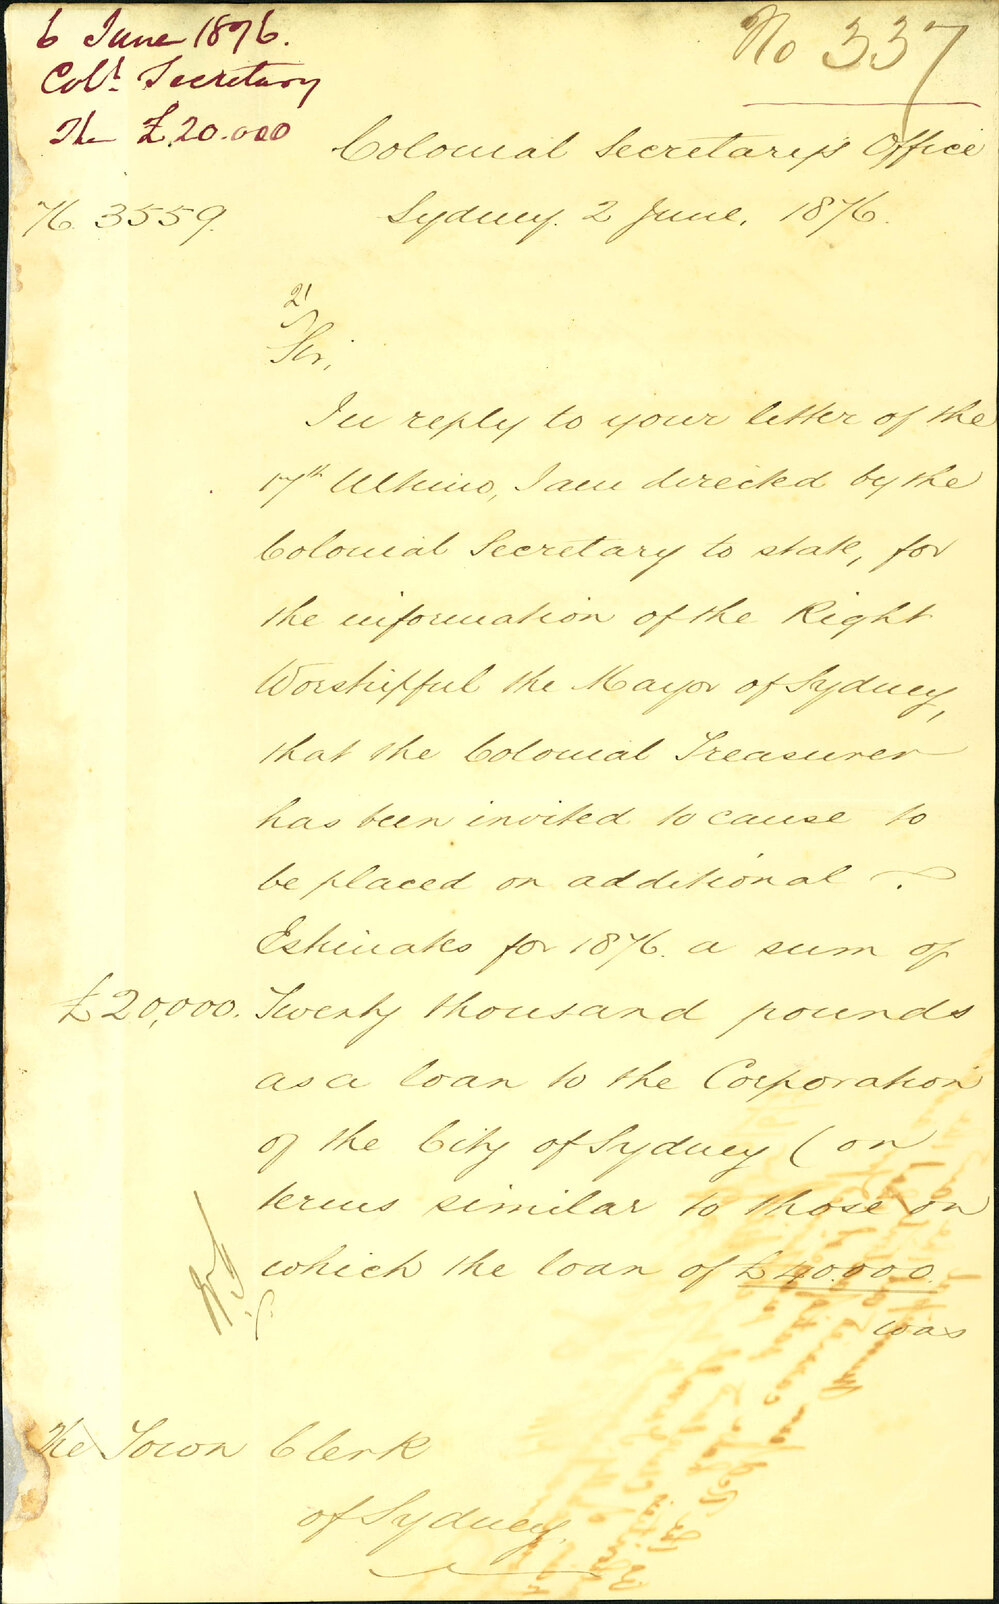 6 June 1876.
Col! Secretary
The £20.000
No 337
Colonial Secretary's Office
76. 3559.
Sydney. 2 June, 1876.
Sir,
In reply to your letter of the
17th Ultimo, I am directed by the
Colonial Secretary to state, for
the information of the Right
Worshipful the Mayor of Sydney,
that the Colonial Treasurer
has been invited to cause to
be placed on additional
Estimates for 1876. a sum of
£20,000. Twenty thousand pounds
as a loan to the Corporation
of the City of Sydney (on
terms similar to those on
which the loan of £40.000.
was
The Town Clerk
of Sydney.